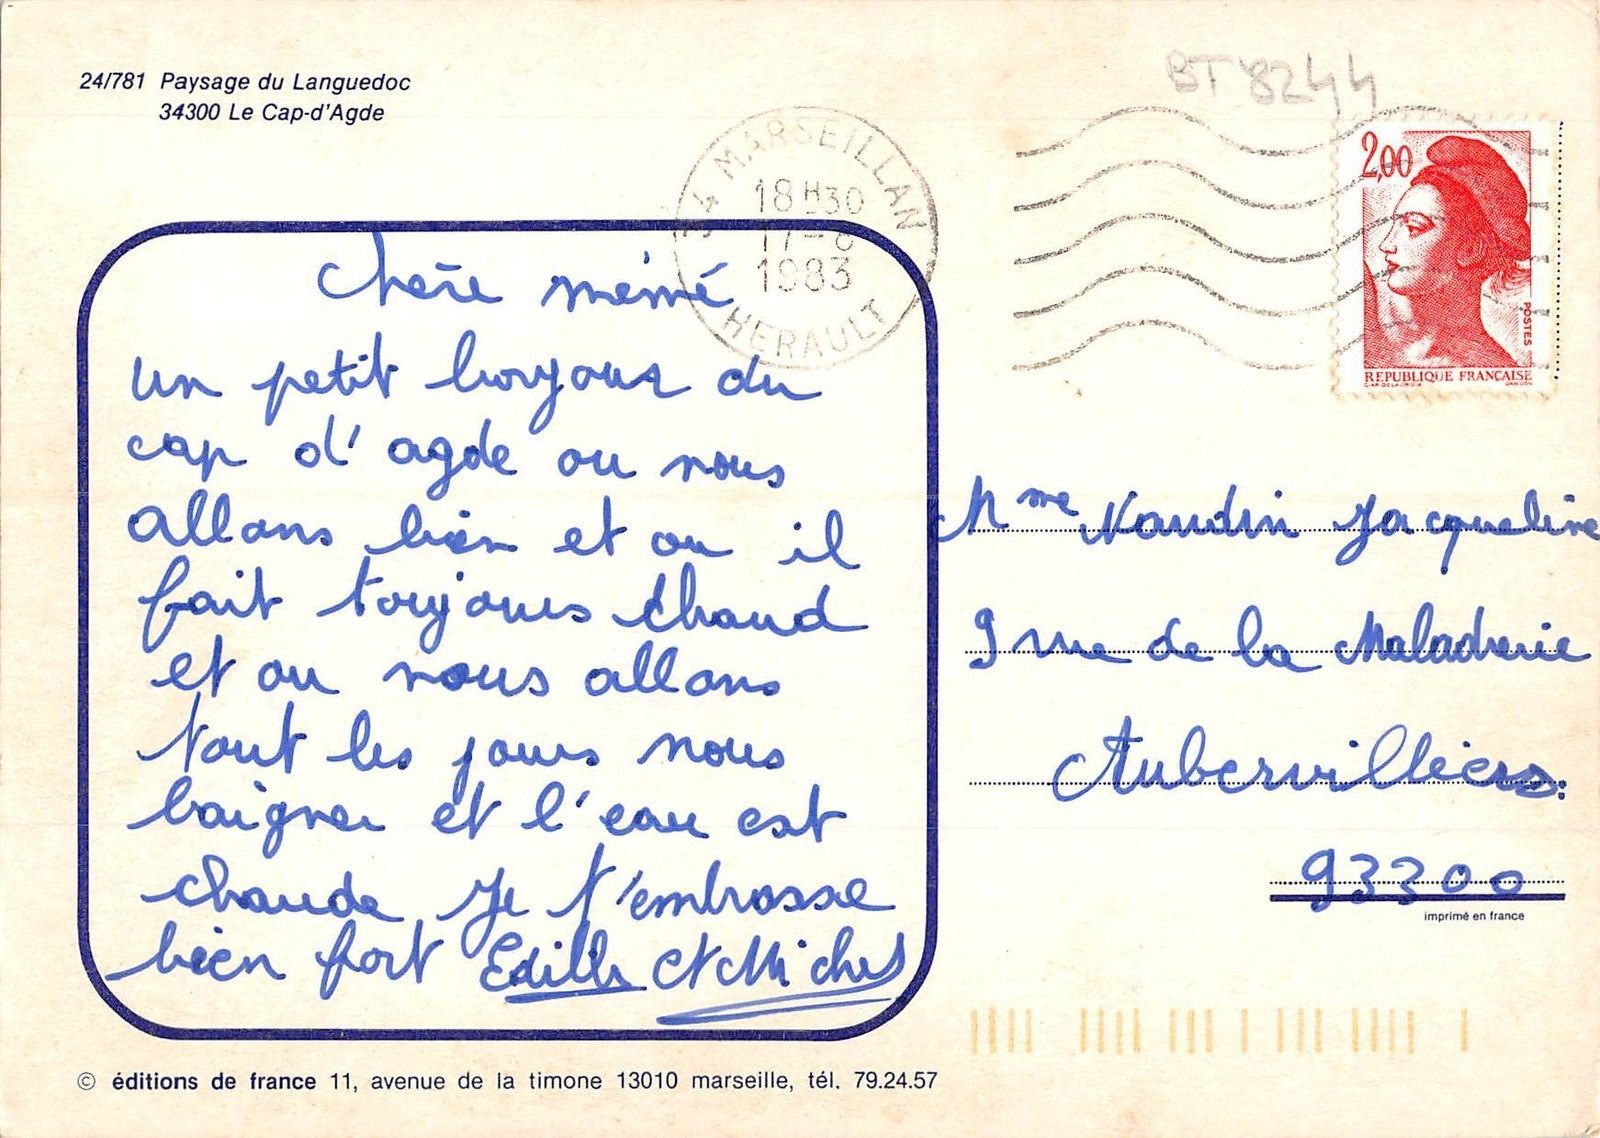 24/781 Paysage du Languedoc
34300 Le Cap-d'Agde
BT 8244
34 MARSEILLAN
18 H 30
17-8
1983
HERAULT
2,00
POSTES
REPUBLIQUE FRANÇAISE
Chère mémé
un petit bonjour du
cap d'agde ou nous
allons bien et ou il
fait toujours chaud
et ou nous allons
tout les jours nous
baigner et l'eau est
chaude Je t'embrasse
bien fort et Michel
Mme Naudin Jacqueline
9 rue de la Maladrerie
Aubervilliers
93300
imprimé en france
© éditions de france 11, avenue de la timone 13010 marseille, tél. 79.24.57